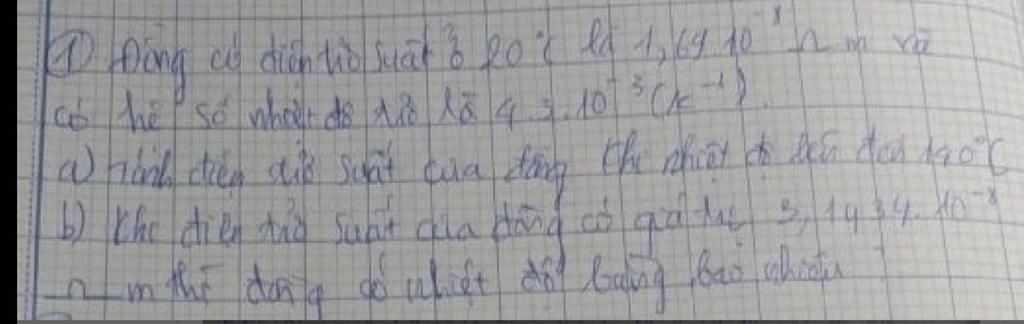 ① Đồng có điện trở suất ở 20°C là 1,69.10⁻⁸ Ω m và
có hệ số nhiệt độ trở là 4,3.10⁻³ (K⁻¹).
a) Tính điện trở suất của đồng khi nhiệt độ lên đến 140°C
b) Khi điện trở suất của đồng có giá trị 3,1434.10⁻⁸
Ω m thì đồng có nhiệt độ bằng bao nhiêu